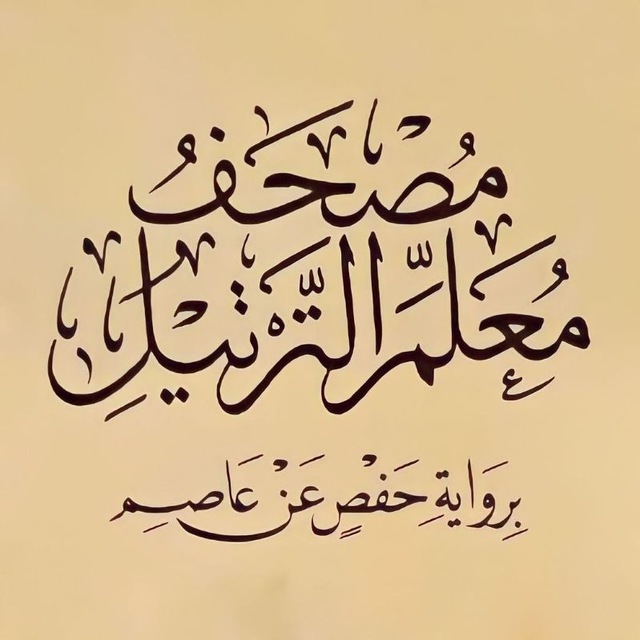 مُصْحَفُ
مُعَلِّمِ التَّرْتِيْلِ
بِرِوَايَةِ حَفْصٍ عَنْ عَاصِمٍ